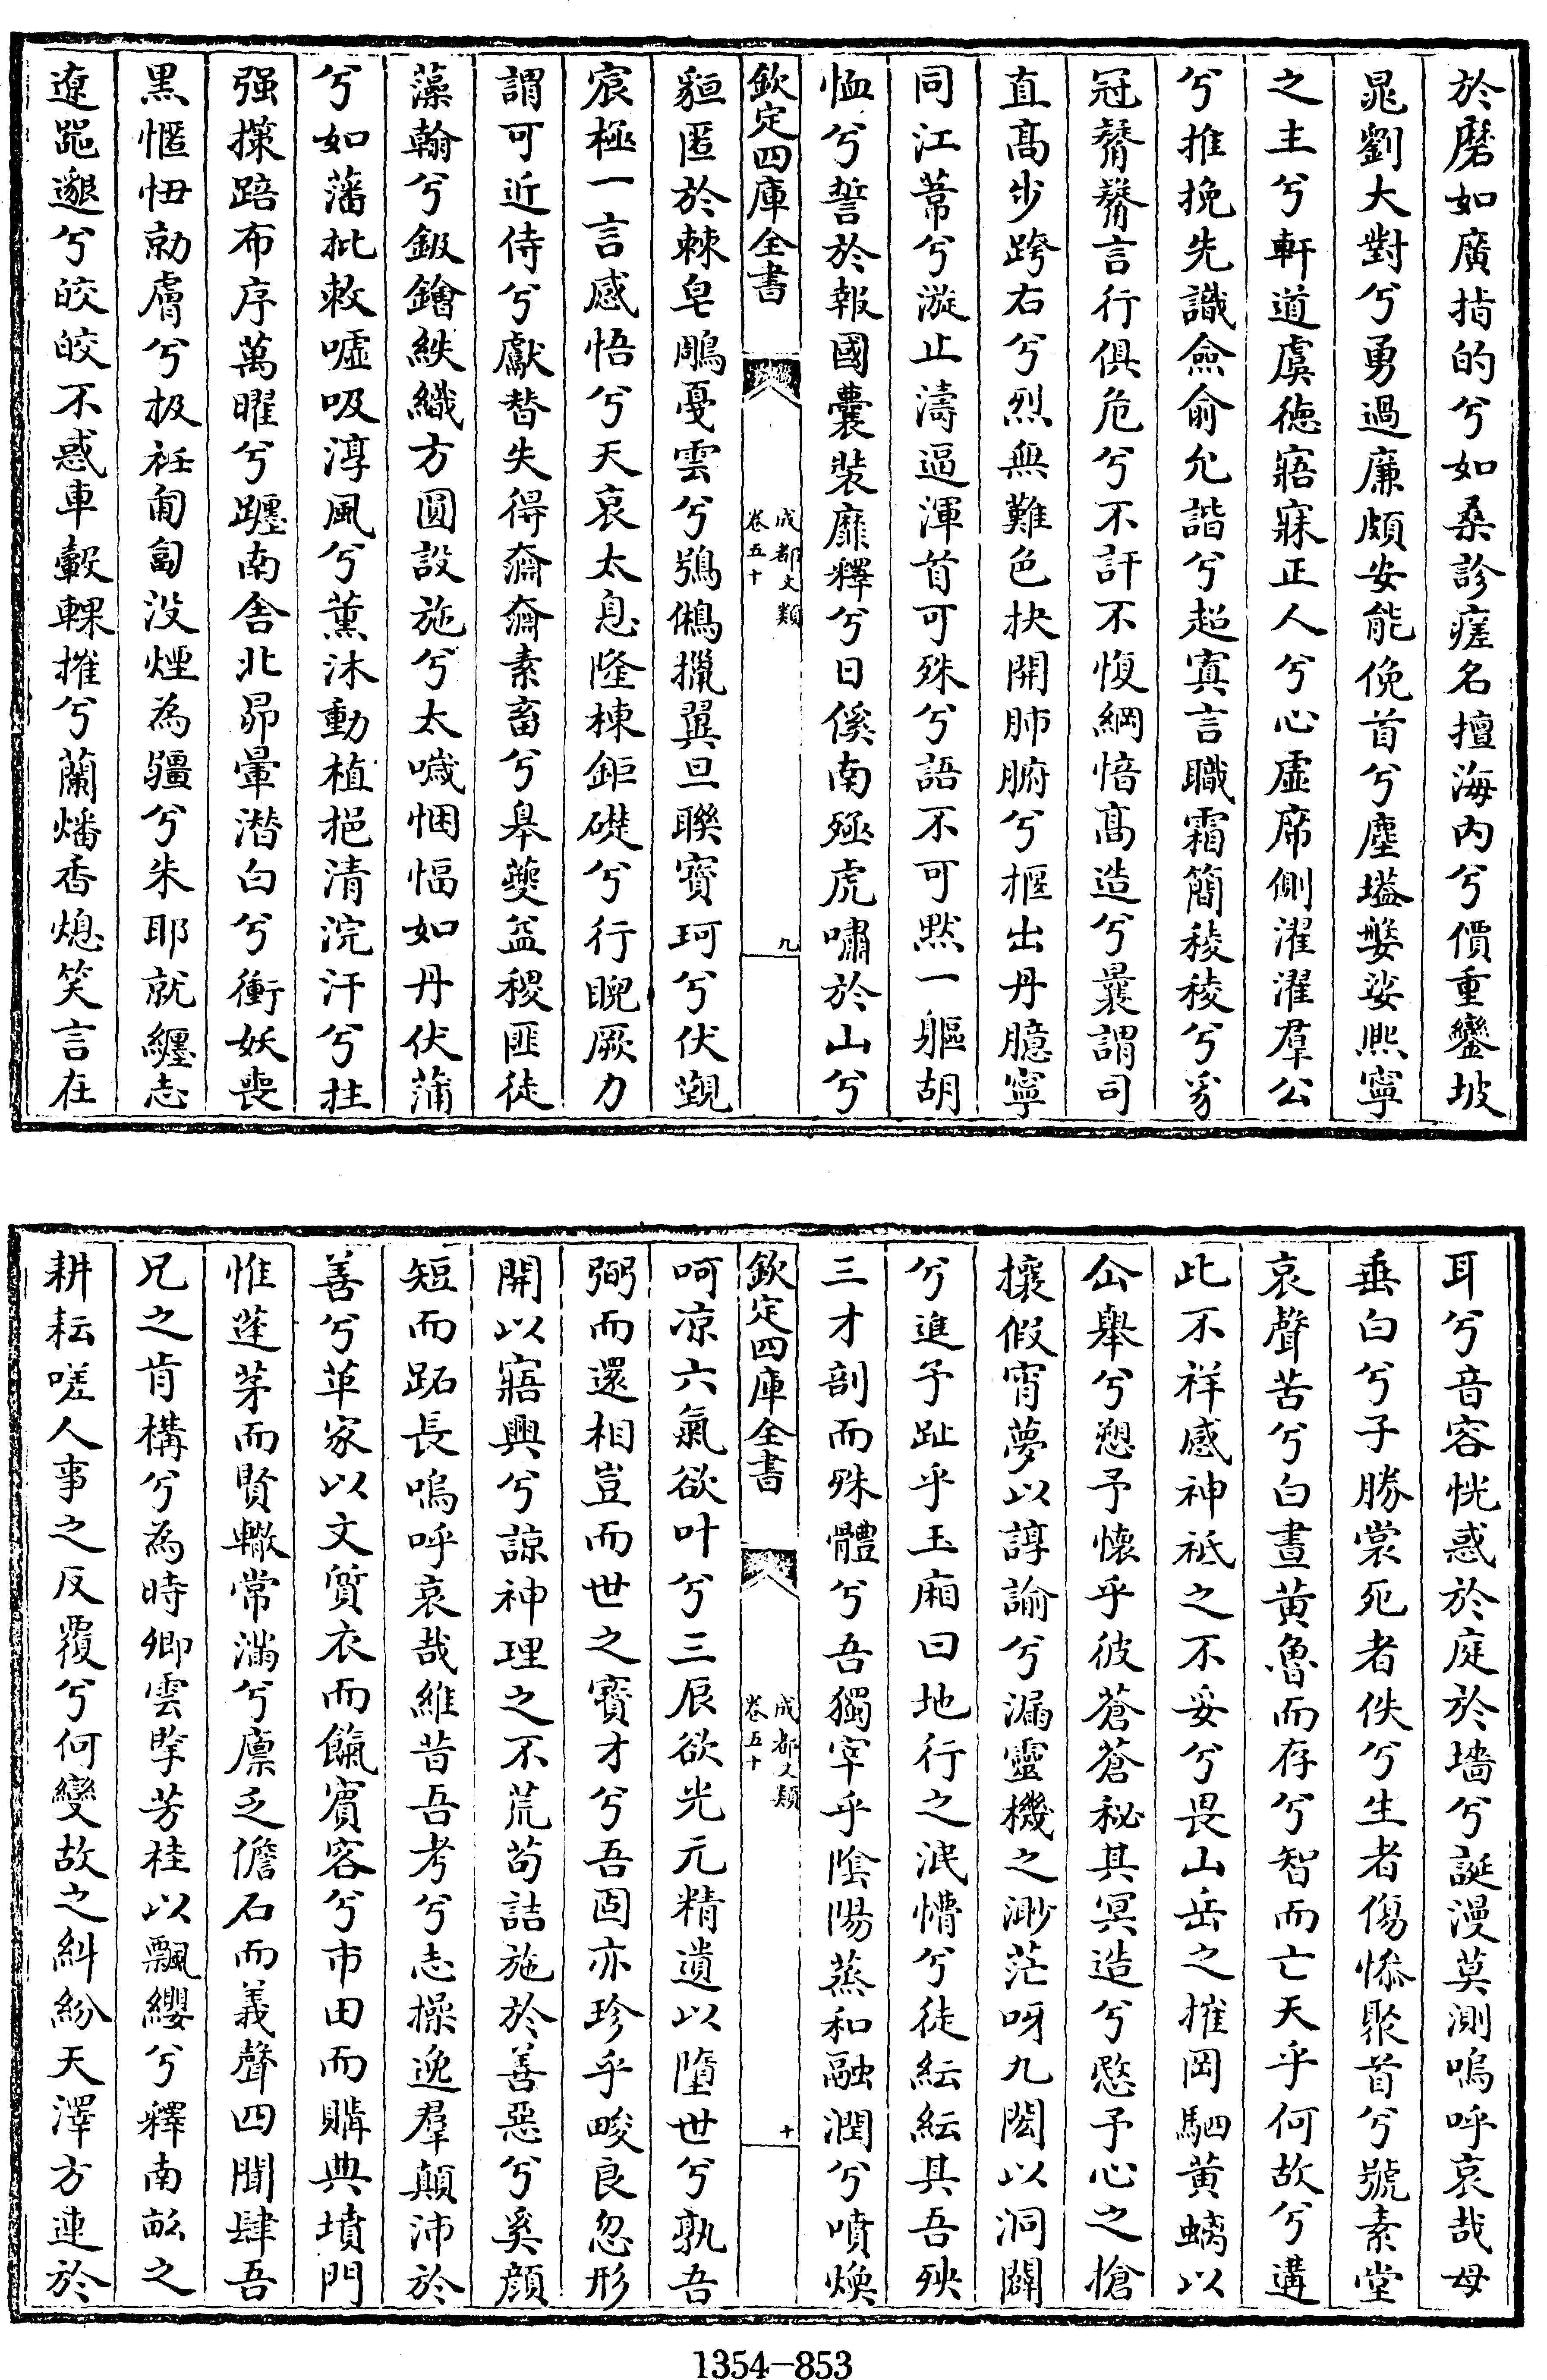 於磨如廣指的兮如桑診瘥名擅海内兮價重鑾坡
晁劉大對兮勇過廉頗安能俛首兮塵壒媻娑熙寧
之主兮軒道虞徳寤寐正人兮心虚席側濯濯羣公
兮推挽先識僉俞允諧兮超寘言職霜簡稜稜兮豸
冠觺觺言行俱危兮不訐不愎綱愔髙造兮曩謂司
直髙步跨右兮烈無難色抉開肺腑兮捱出丹臆寧
同江蒂兮漩止濤逼渾首可殊兮語不可黙一軀胡
恤兮誓於報國囊裝靡釋兮日傒南殛虎嘯於山兮
欽定四庫全書
成都文類
卷五十
九
貆匿於棘皂鵰戛雲兮鴞鵂擸翼旦聯寶珂兮伏觐
宸極一言感悟兮天哀太息隆棟鉅礎兮行睨厥力
謂可近侍兮獻替失得奫奫素畜兮皋夔益稷匪徒
藻翰兮鈒鐪紩織方圓設施兮太嘁悃愊如丹伏蒲
兮如藩批敕嘘吸淳風兮薰沐動植挹清浣汗兮拄
强㩧踣布序萬曜兮躔南舍北昴暈潛白兮衝妖喪
黒慪忸勍膚兮极衽匍匐没煙為疆兮朱耶就纏志
遼跽邈兮皎皎不惑車轂輠摧兮蘭燔香熄笑言在
耳兮音容恍惑於庭於墻兮誕漫莫測嗚呼哀哉母
垂白兮子勝裳死者佚兮生者傷慘聚首兮號素堂
哀聲苦兮白晝黄魯而存兮智而亡天乎何故兮遘
此不祥感神祗之不妥兮畏山岳之摧岡駟黄螭以
㕣舉兮愬予懷乎彼蒼蒼秘其冥造兮愍予心之搶
攘假宵夢以諄諭兮漏靈機之渺茫呀九閎以洞闢
兮進予趾乎玉廂曰地行之泯懵兮徒紜紜其吾殃
三才剖而殊體兮吾獨宰乎隂陽蒸和融潤兮噴煥
欽定四庫全書
成都文類
卷五十
十
呵凉六氣欲叶兮三辰欲光元精遺以墮世兮孰吾
弼而還相豈而世之寳才兮吾固亦珍乎畯良忽形
開以寤興兮諒神理之不荒茍詰施於善惡兮奚顔
短而跖長嗚呼哀哉維昔吾考兮志操逸羣顛沛於
善兮革家以文質衣而餼賓客兮市田而購典墳門
惟蓬茅而賢轍常滿兮廪乏儋石而義聲四聞肆吾
兄之肯構兮為時卿雲擥芳桂以飄纓兮釋南畝之
耕耘嗟人事之反覆兮何變故之糾紛天澤方連於
1354-853